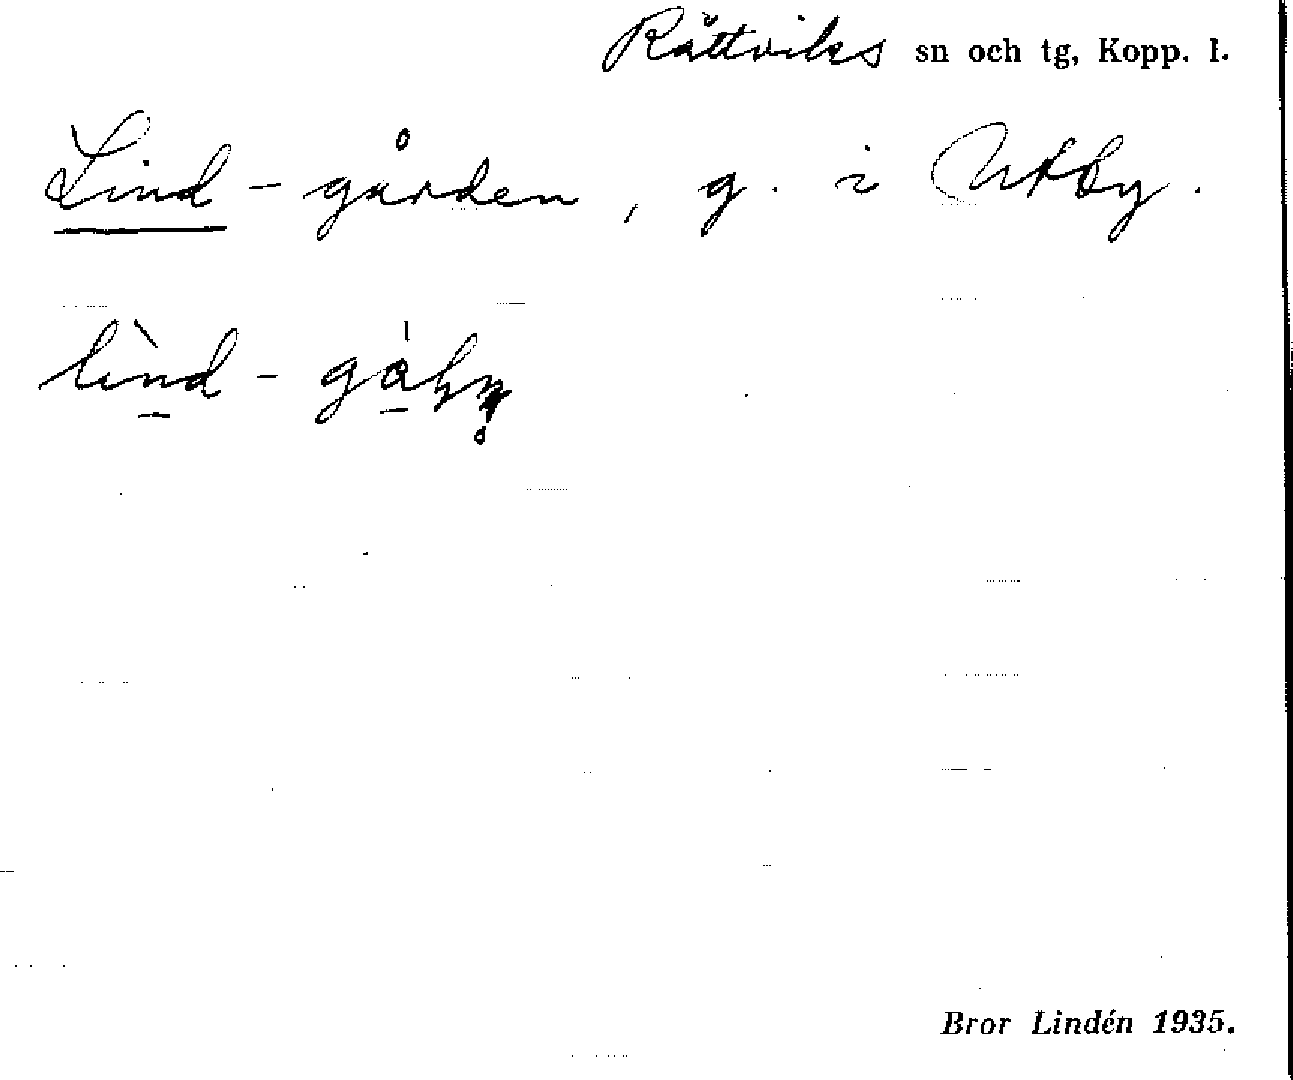 Rättviks sn och tg, Kopp. l.
Lind-gården, g. i Utby.
Bror Lindén 1935.